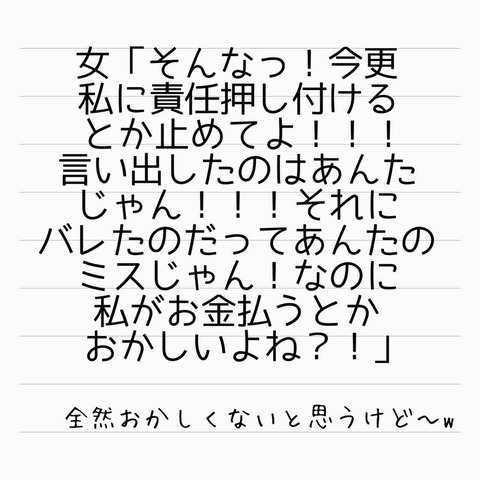 女「そんなっ！今更
私に責任押し付ける
とか止めてよ！！！
言い出したのはあんた
じゃん！！！それに
バレたのだってあんたの
ミスじゃん！なのに
私がお金払うとか
おかしいよね？！」
全然おかしくないと思うけど〜w